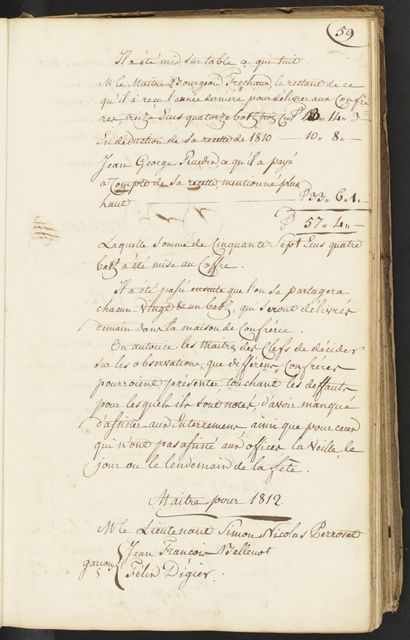 59
Il a été mis sur table ce qui suit.
Mr le Maitre Bourgeois Frochaux, le restant de ce
qu'il a reçu l'année derniere pour délivrer aux Confre
res treize Ecus quatorze batz trois Cruz 13„ 14„ 3
En déduction de sa recette de 1810 10„ 8„ –
Jean George Ruedin ce qu'il a payé
à Compte de sa recette mentionnée plus
haut 33„ 6„ 1„
57„ 4„ –
Laquelle somme de Cinquante Sept Ecus quatre
batz a été mise au Coffre.
Il a été passé ensuite que l'on se partagera
chacun vingt & un batz, qui seront délivrés
demain dans la maison de Confrérie.
On autorise les Maitres des Clefs de décider
sur les observations, que différens Confréres
pourroient présenter touchant les deffauts
pour lesquels ils sont notés, d'avoir manqué
d'assister aux Enterremens ainsi que pour ceux
qui n'ont pas assisté aux offices la Veille, le
jour ou le lendemain de la fête.
Maitre pour 1812
Mr le Lieutenant Simon Nicolas Perroset
garçons Jean François Bellenot
Felix Digier.